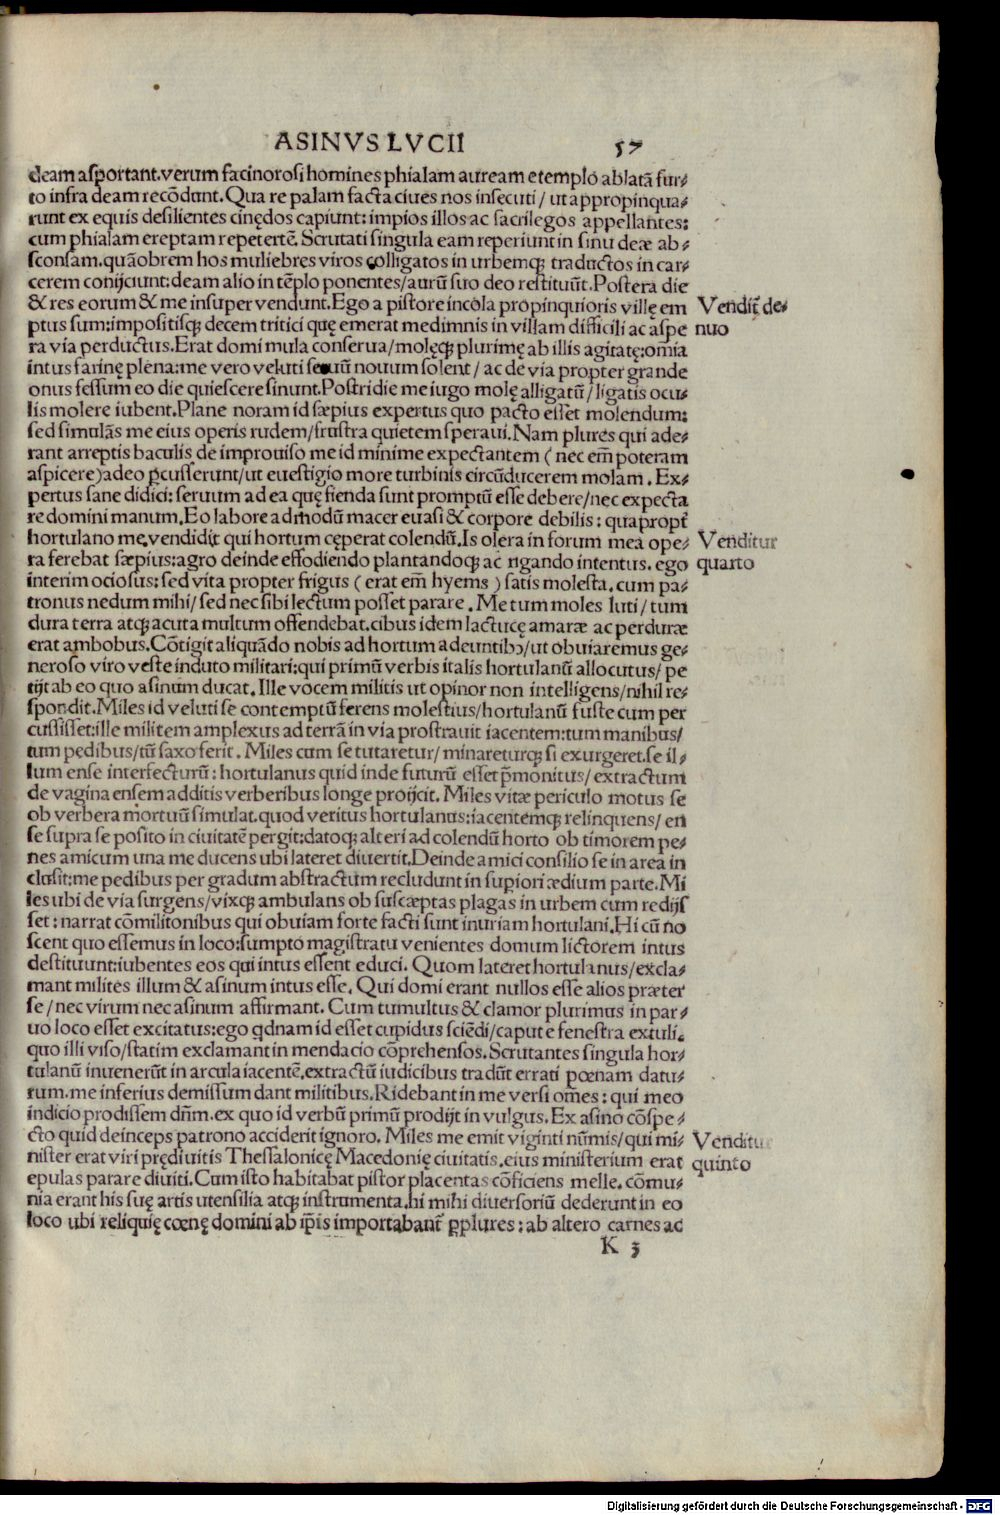 ASINVS LVCII 57
deam asportant.verum facinorosi homines phialam auream e templo ablatā fur⸗
to infra deam recōdunt. Qua re palam facta ciues nos insecuti / ut appropinqua⸗
runt ex equis desilientes cinędos capiunt: impios illos ac sacrilegos appellantes:
cum phialam ereptam repeterēt. Scrutati singula eam reperiunt in sinu deæ ab⸗
sconsam.quāobrem hos muliebres viros colligatos in urbemq; traductos in car⸗
cerem conijciunt:deam alio in tēplo ponentes/aurū suo deo restituūt.Postera die
& res eorum & me insuper vendunt.Ego a pistore incola propinquioris villę em
Vendit̄ de⸗
ptus sum:impositisq; decem tritici quę emerat medimnis in villam difficili ac aspe
nuo
ra via perductus.Erat domi mula conserua/molęq; plurimę ab illis agitatę:omīa
intus farinę plena:me vero veluti seruū nouum solent/ ac de via propter grande
onus fessum eo die quiescere sinunt.Postridie me iugo molę alligatū/ ligatis ocu⸗
lis molere iubent.Plane noram id sæpius expertus quo pacto esset molendum:
sed simulās me eius operis rudem/frustra quietem speraui.Nam plures qui ade⸗
rant arreptis baculis de improuiso me id minime expectantem ( nec em̄ poteram
aspicere)adeo ꝑcusserunt/ut euestigio more turbinis circūducerem molam. Ex⸗
pertus sane didici: seruum ad ea quę fienda sunt promptū esse debere/nec expecta
re domini manum.Eo labore admodū macer euasi & corpore debilis: qua propt̄
hortulano me vendidit qui hortum cęperat colendū.Is olera in forum mea ope⸗
Venditur
ra ferebat sæpius:agro deinde effodiendo plantandoq; ac rigando intentus. ego
quarto
interim ociosus: sed vita propter frigus ( erat em̄ hyems ) satis molesta. cum pa⸗
tronus nedum mihi/ sed nec sibi lectum posset parare. Me tum moles luti/ tum
dura terra atq; acuta multum offendebat.cibus idem lactucę amaræ ac perduræ
erat ambobus.Cōtigit aliquādo nobis ad hortum adeuntibꝫ/ut obuiaremus ge⸗
neroso viro veste induto militari:qui primū verbis italis hortulanū allocutus/ pe
tijt ab eo quo asinum ducat. Ille vocem militis ut opinor non intelligens/nihil re⸗
spondit.Miles id veluti se contemptū ferens molestius/hortulanū fuste cum per
cussisset:ille militem amplexus ad terrā in via prostrauit iacentem:tum manibus/
tum pedibus/tū saxo ferit. Miles cum se tutaretur/ minareturq; si exurgeret.se il⸗
lum ense interfecturū: hortulanus quid inde futurū esset p̄monitus/ extractum
de vagina ensem additis verberibus longe proijcit. Miles vitæ periculo motus se
ob verbera mortuū simulat.quod veritus hortulanus:iacentemq; relinquens/ en
se supra se posito in ciuitatē pergit:datoq; alteri ad colendū horto ob timorem pe⸗
nes amicum una me ducens ubi lateret diuertit.Deinde amici consilio se in area in
clusit:me pedibus per gradum abstractum recludunt in suꝑiori ædium parte.Mi
les ubi de via surgens/vixq; ambulans ob suscæptas plagas in urbem cum redijs
set: narrat cōmilitonibus qui obuiam forte facti sunt iniuriam hortulani.Hi cū no
scent quo essemus in loco:sumpto magistratu venientes domum lictorem intus
destituunt:iubentes eos qui intus essent educi. Quom lateret hortulanus/excla⸗
mant milites illum & asinum intus esse. Qui domi erant nullos esse alios præter
se/ nec virum nec asinum affirmant. Cum tumultus & clamor plurimus in par⸗
uo loco esset excitatus:ego qdnam id esset cupidus sciēdi/caput e fenestra extuli.
quo illi viso/statim exclamant in mendacio cōprehensos.Scrutantes singula hor⸗
tulanū inuenerūt in arcula iacentē.extractū iudicibus tradūt errati pœnam datu⸗
rum.me inferius demissum dant militibus.Ridebant in me versi om̄es: qui meo
indicio prodissem dn̄m.ex quo id verbū primū prodijt in vulgus. Ex asino cōspe⸗
cto quid deinceps patrono acciderit ignoro. Miles me emit viginti nūmis/qui mi⸗
Venditur
nister erat viri prędiuitis Thessalonicę Macedonię ciuitatis.eius ministerium erat
quinto
epulas parare diuiti.Cum isto habitabat pistor placentas cōficiens melle. cōmu⸗
nia erant his suę artis utensilia atq; instrumenta.hi mihi diuersoriū dederunt in eo
loco ubi reliquię cœnę domini ab ip̄is importabant̄ ꝑplures: ab altero carnes ac
K 3
Digitalisierung gefördert durch die Deutsche Forschungsgemeinschaft - DFG